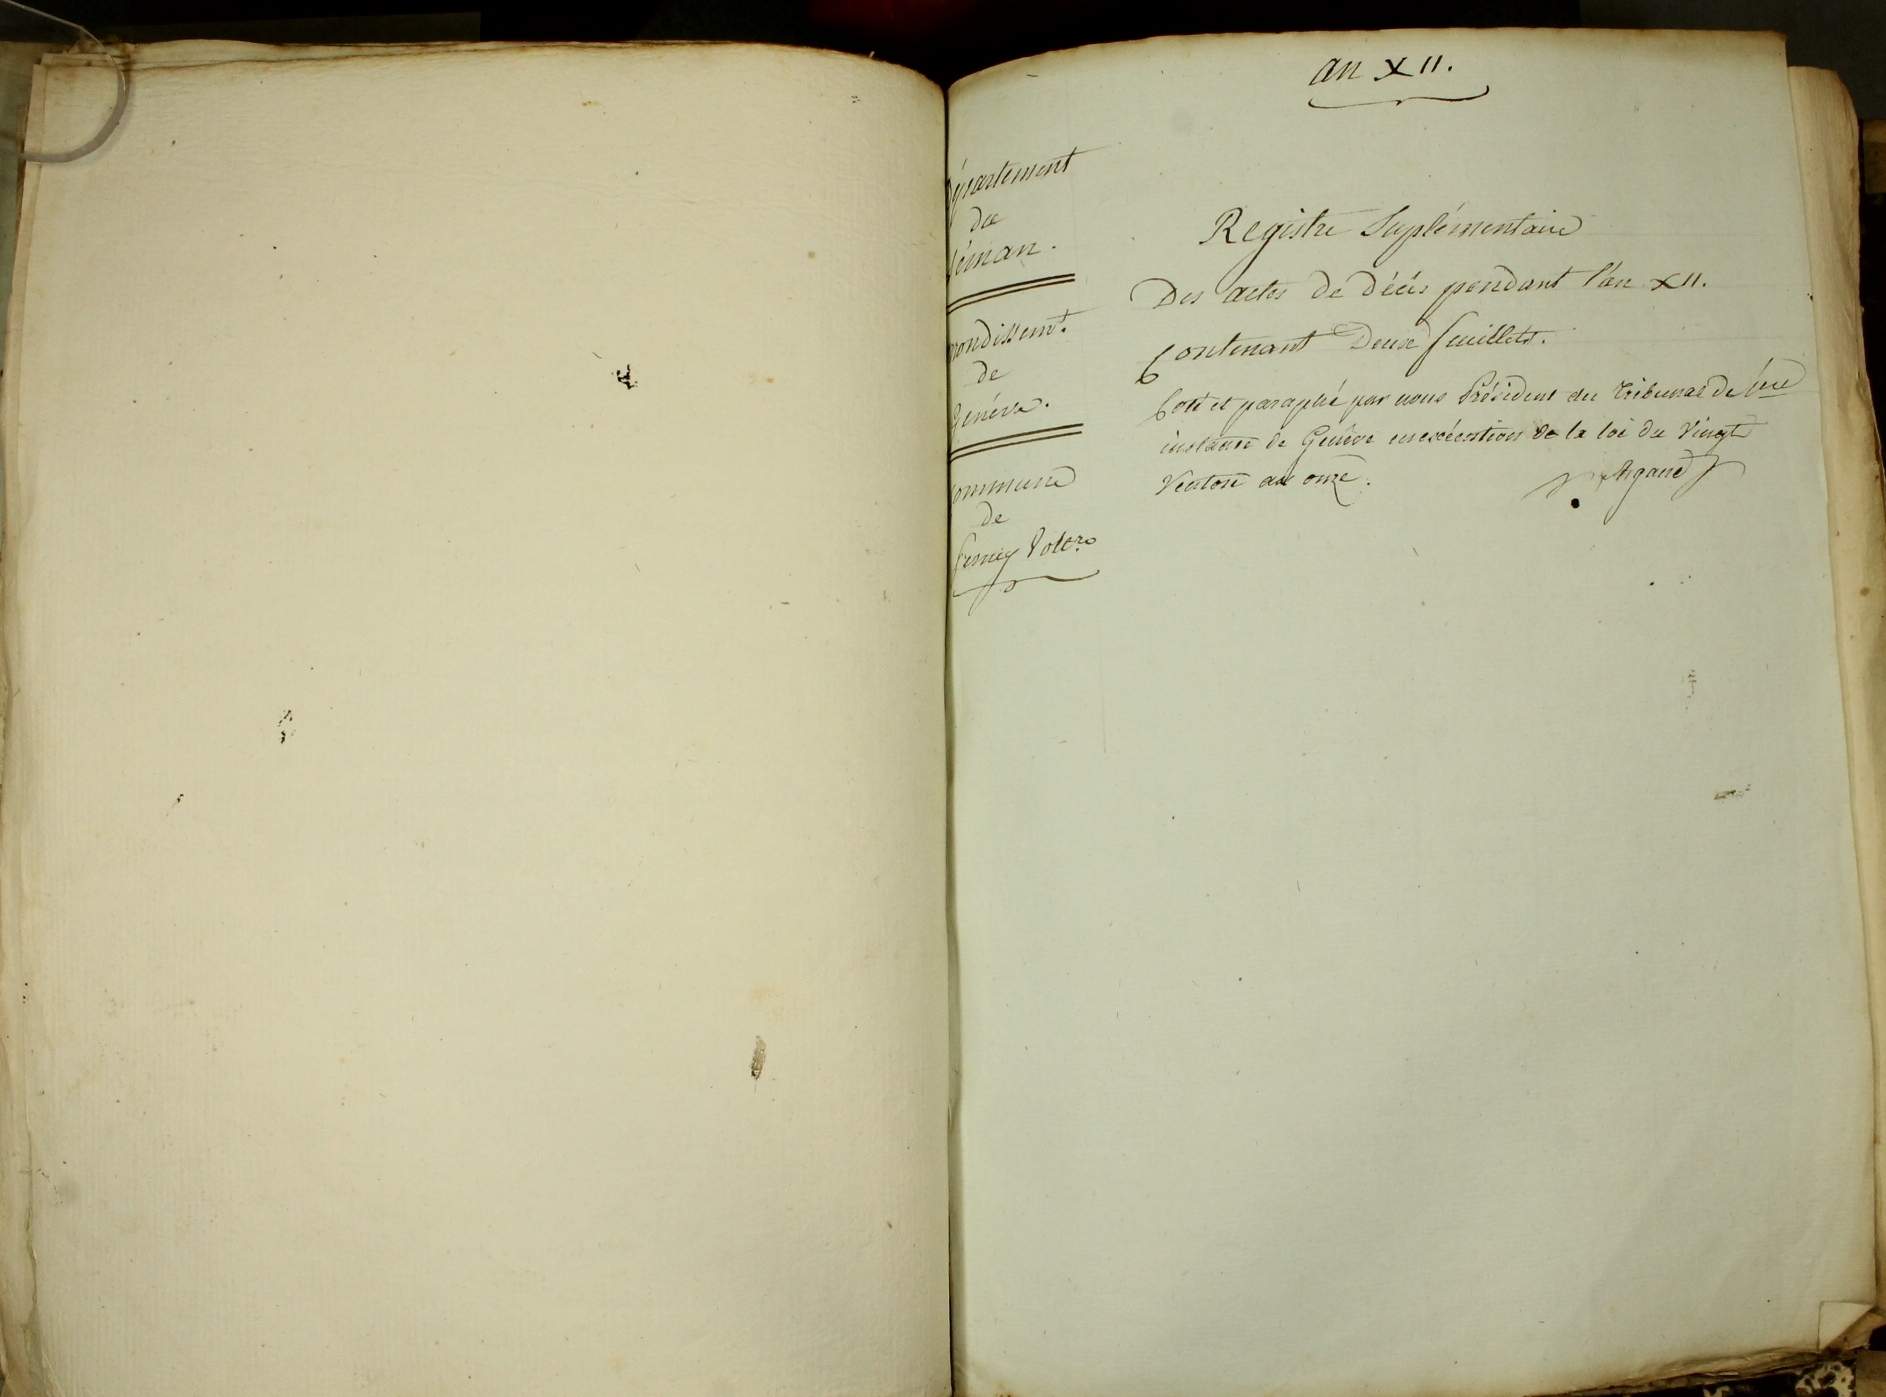 an XII.
épartement
du
éman.
rondissemt.
de
Genève.
ommune
de
ferney Voltre
Registre Suplémentaire
Des actes de décès pendant l'an XII.
Contenant Deux feuillets.
Coté et paraphé par nous Président du Tribunal de 1ere
instance de Genève en exécution de la loi du Vingt
Ventose an onze.
Argand